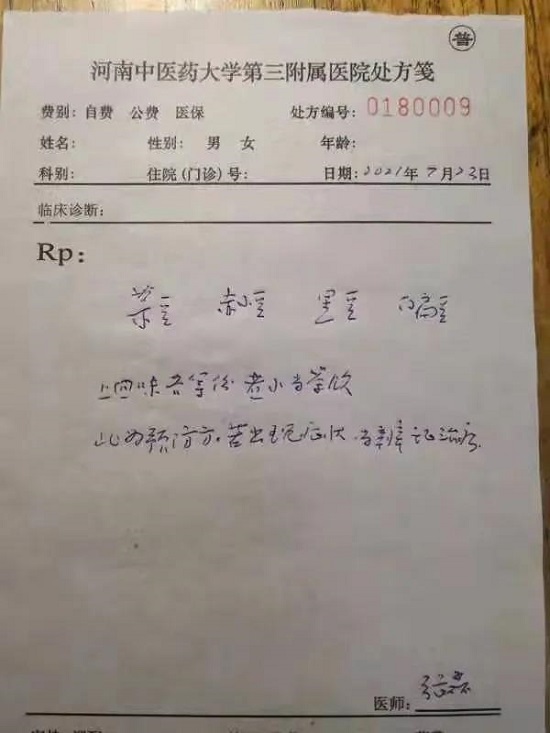 普
河南中医药大学第三附属医院处方笺
费别: 自费 公费 医保 处方编号: 0180009
姓名: 性别: 男 女 年龄:
科别: 住院(门诊)号: 日期: 2021年7月23日
临床诊断:
Rp:
赤小豆 黑豆 白扁豆
上四味各等份 煮水当茶饮
此为预防方,若出现症状,当辨证治疗
医师: 张磊